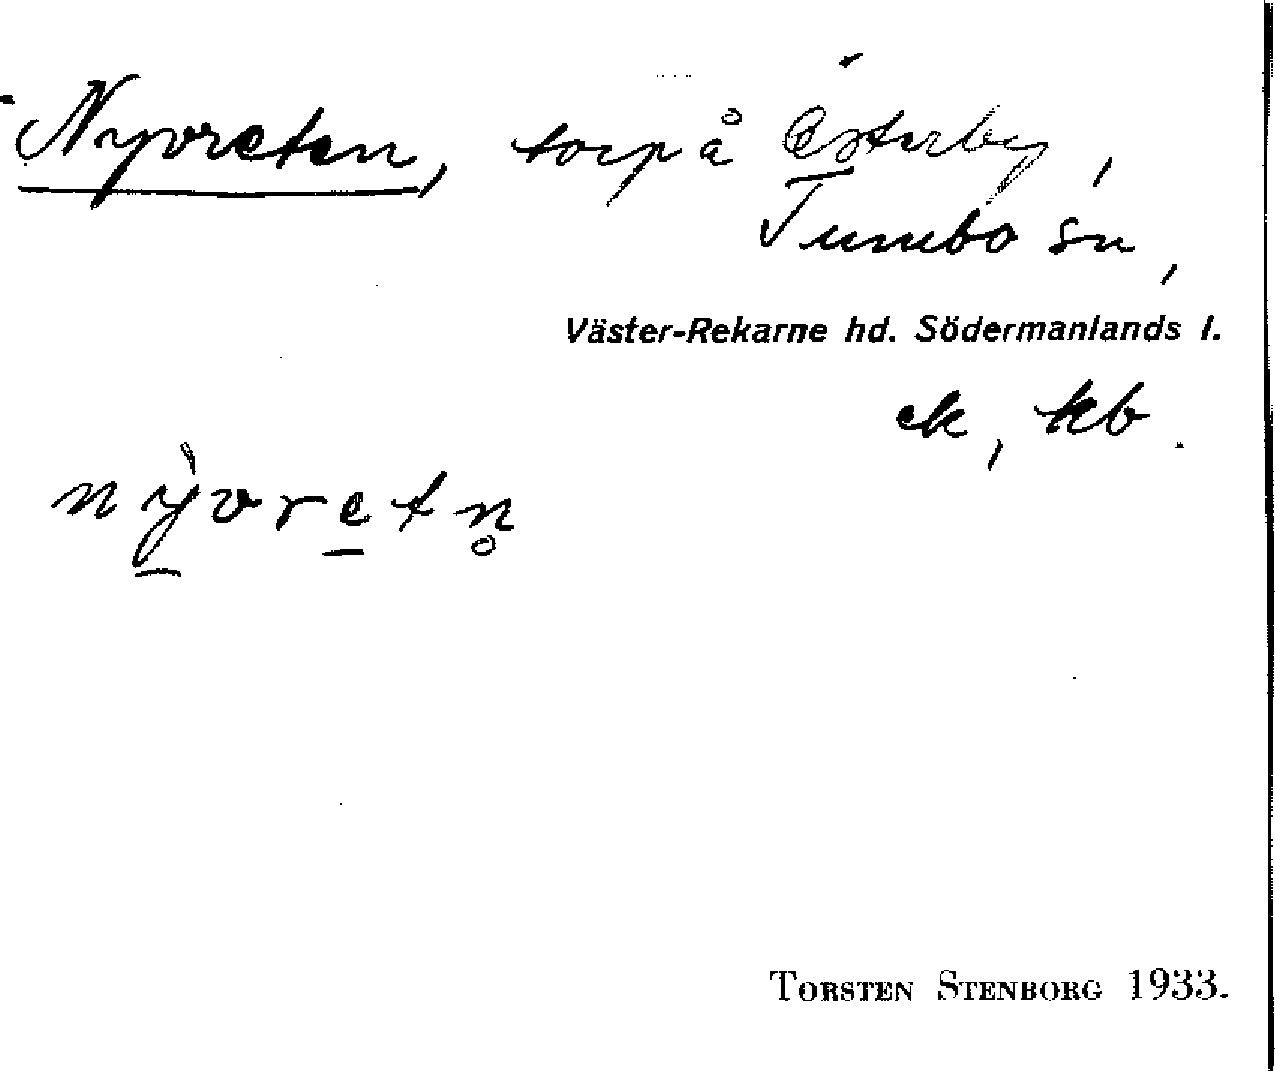 Nyvreten, torp å Österby,
Tumbo sn,
Väster-Rekarne hd. Södermanlands l.
ek, kb.
nỳ̠vre̠tn̥
TORSTEN STENBORG 1933.